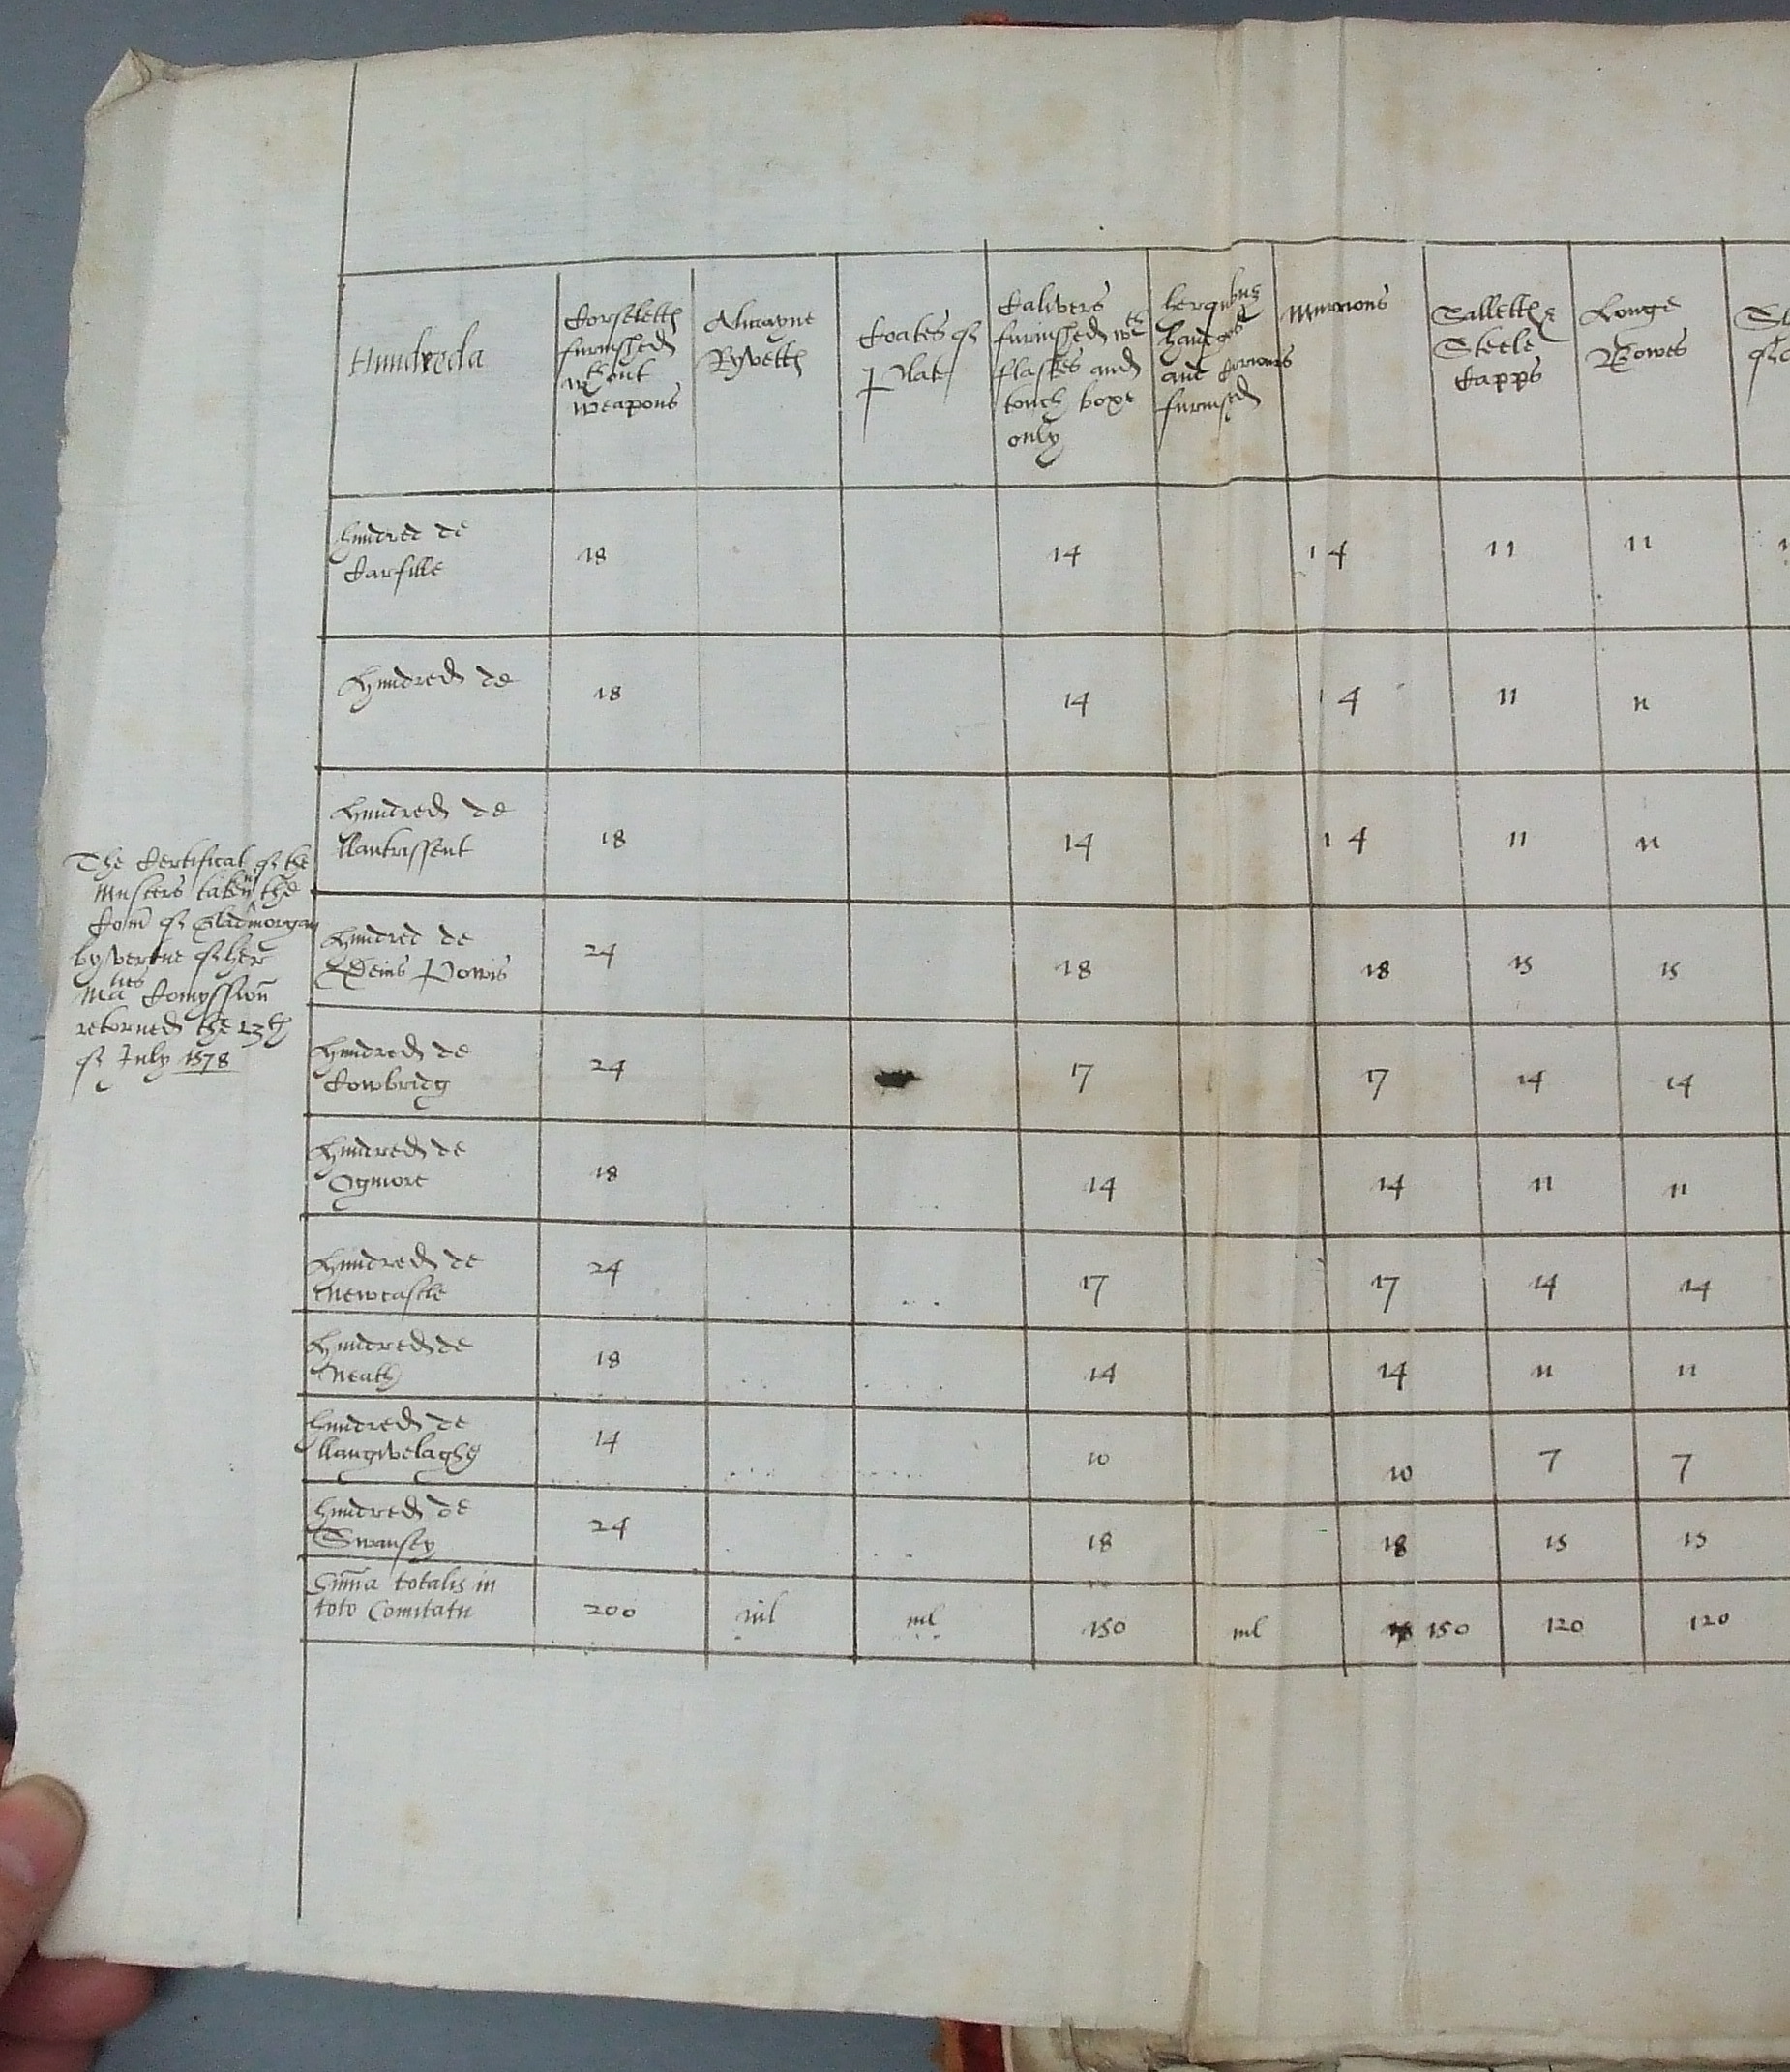 Hundreda
Corseletts
furnished
wthout
weapons
Almayne
Ryvetts
Coates of
Plate
Calivers
furnished wth
flaskes and
touch boxe
only
furnised
Murrions
Salletts &
Steele
Capps
Longe
Bowes
hundred de
Carfille
18 14 14 11 11
Hundred de
18 14 14 11 11
Hundred de
llantrissent
18 14 14 11 11
Hundred de
Deins Powis
24 18 18 15 15
Hundred de
Cowbridg
24 17 17 14 14
Hundred de
Ogmore
18 14 14 11 11
Hundred de
Newcastle
24 17 17 14 14
Hundred de
Neath
18 14 14 11 11
hundred de
llangwelaghg
14 10 10 7 7
hundred de
Swansey
24 18 18 15 15
Sum̄a totalis in
toto Comitatu
200 nil nil 150 nil 150 120 120
The Certificat of the
Musters taken in the
Com̄ of Gladmorgan
by vertue of her
Maties Comyssion
retorned the 13th
of July 1578